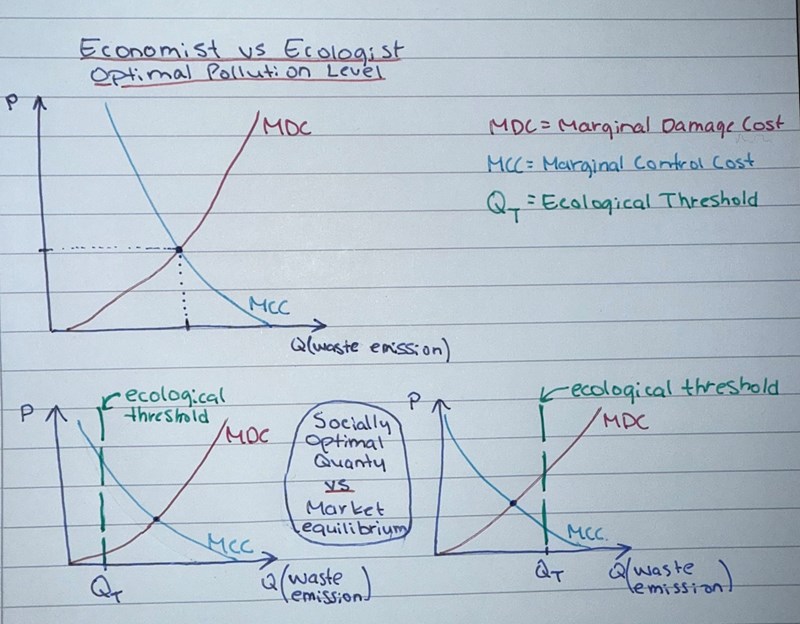 Economist vs Ecologist
Optimal Pollution Level
P
MDC
MCC
Q(waste emission)
MDC = Marginal Damage Cost
MCC = Marginal Control Cost
QT = Ecological Threshold
P
ecological
threshold
MDC
MCC
QT
Q(waste
emission)
Socially
Optimal
Quanty
vs
Market
equilibrium
P
ecological threshold
MDC
MCC
QT
Q(waste
emission)